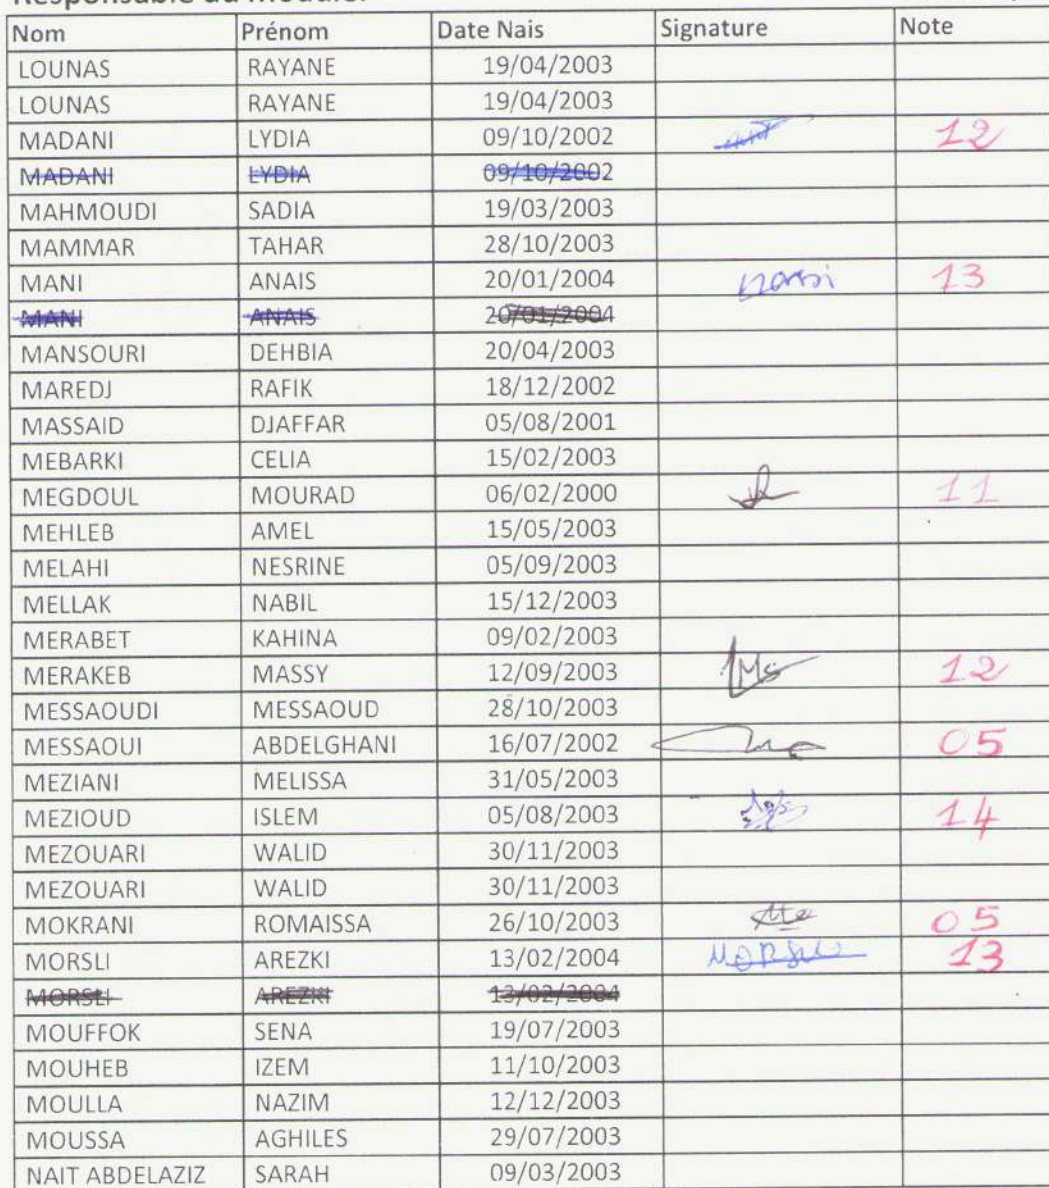 Responsable du module:
Nom Prénom Date Nais Signature Note
LOUNAS RAYANE 19/04/2003
LOUNAS RAYANE 19/04/2003
MADANI LYDIA 09/10/2002 12
MADANI LYDIA 09/10/2002
MAHMOUDI SADIA 19/03/2003
MAMMAR TAHAR 28/10/2003
MANI ANAIS 20/01/2004 13
MANI ANAIS 20/01/2004
MANSOURI DEHBIA 20/04/2003
MAREDJ RAFIK 18/12/2002
MASSAID DJAFFAR 05/08/2001
MEBARKI CELIA 15/02/2003
MEGDOUL MOURAD 06/02/2000 11
MEHLEB AMEL 15/05/2003
MELAHI NESRINE 05/09/2003
MELLAK NABIL 15/12/2003
MERABET KAHINA 09/02/2003
MERAKEB MASSY 12/09/2003 12
MESSAOUDI MESSAOUD 28/10/2003
MESSAOUI ABDELGHANI 16/07/2002 05
MEZIANI MELISSA 31/05/2003
MEZIOUD ISLEM 05/08/2003 14
MEZOUARI WALID 30/11/2003
MEZOUARI WALID 30/11/2003
MOKRANI ROMAISSA 26/10/2003 05
MORSLI AREZKI 13/02/2004 13
MORSLI AREZKI 13/02/2004
MOUFFOK SENA 19/07/2003
MOUHEB IZEM 11/10/2003
MOULLA NAZIM 12/12/2003
MOUSSA AGHILES 29/07/2003
NAIT ABDELAZIZ SARAH 09/03/2003